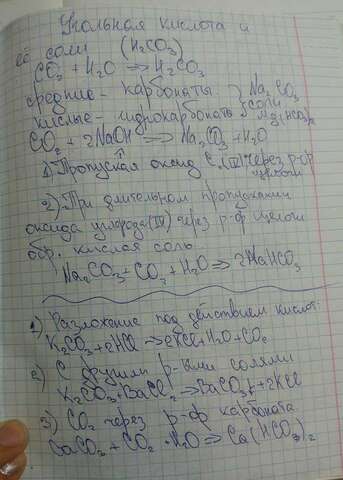 Угольная кислота и
её соли (H₂CO₃)
CO₂ + H₂O ⇒ H₂CO₃
средние - карбонаты Na₂CO₃
кислые - гидрокарбонаты соли Mg(HCO₃)₂
CO₂ + 2NaOH ⇒ Na₂CO₃ + H₂O
1) Пропуская оксид C (IV) через р-р
щёлочи
2) При длительном пропускании
оксида углерода (IV) через р-р щёлочи
обр. кислая соль
Na₂CO₃ + CO₂ + H₂O ⇒ 2NaHCO₃
1) Разложение под действием кислот.
K₂CO₃ + 2HCl ⇒ 2KCl + H₂O + CO₂
2) С другими р-ыми солями
K₂CO₃ + BaCl₂ ⇒ BaCO₃↓ + 2KCl
3) CO₂ через р-р карбоната
CaCO₃ + CO₂ + H₂O ⇒ Ca(HCO₃)₂